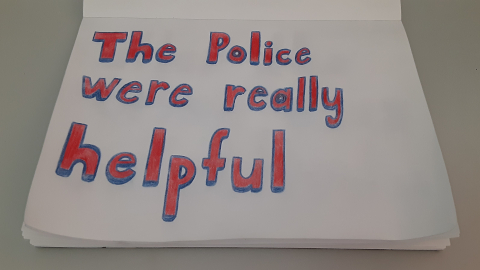 The Police
were really
helpful